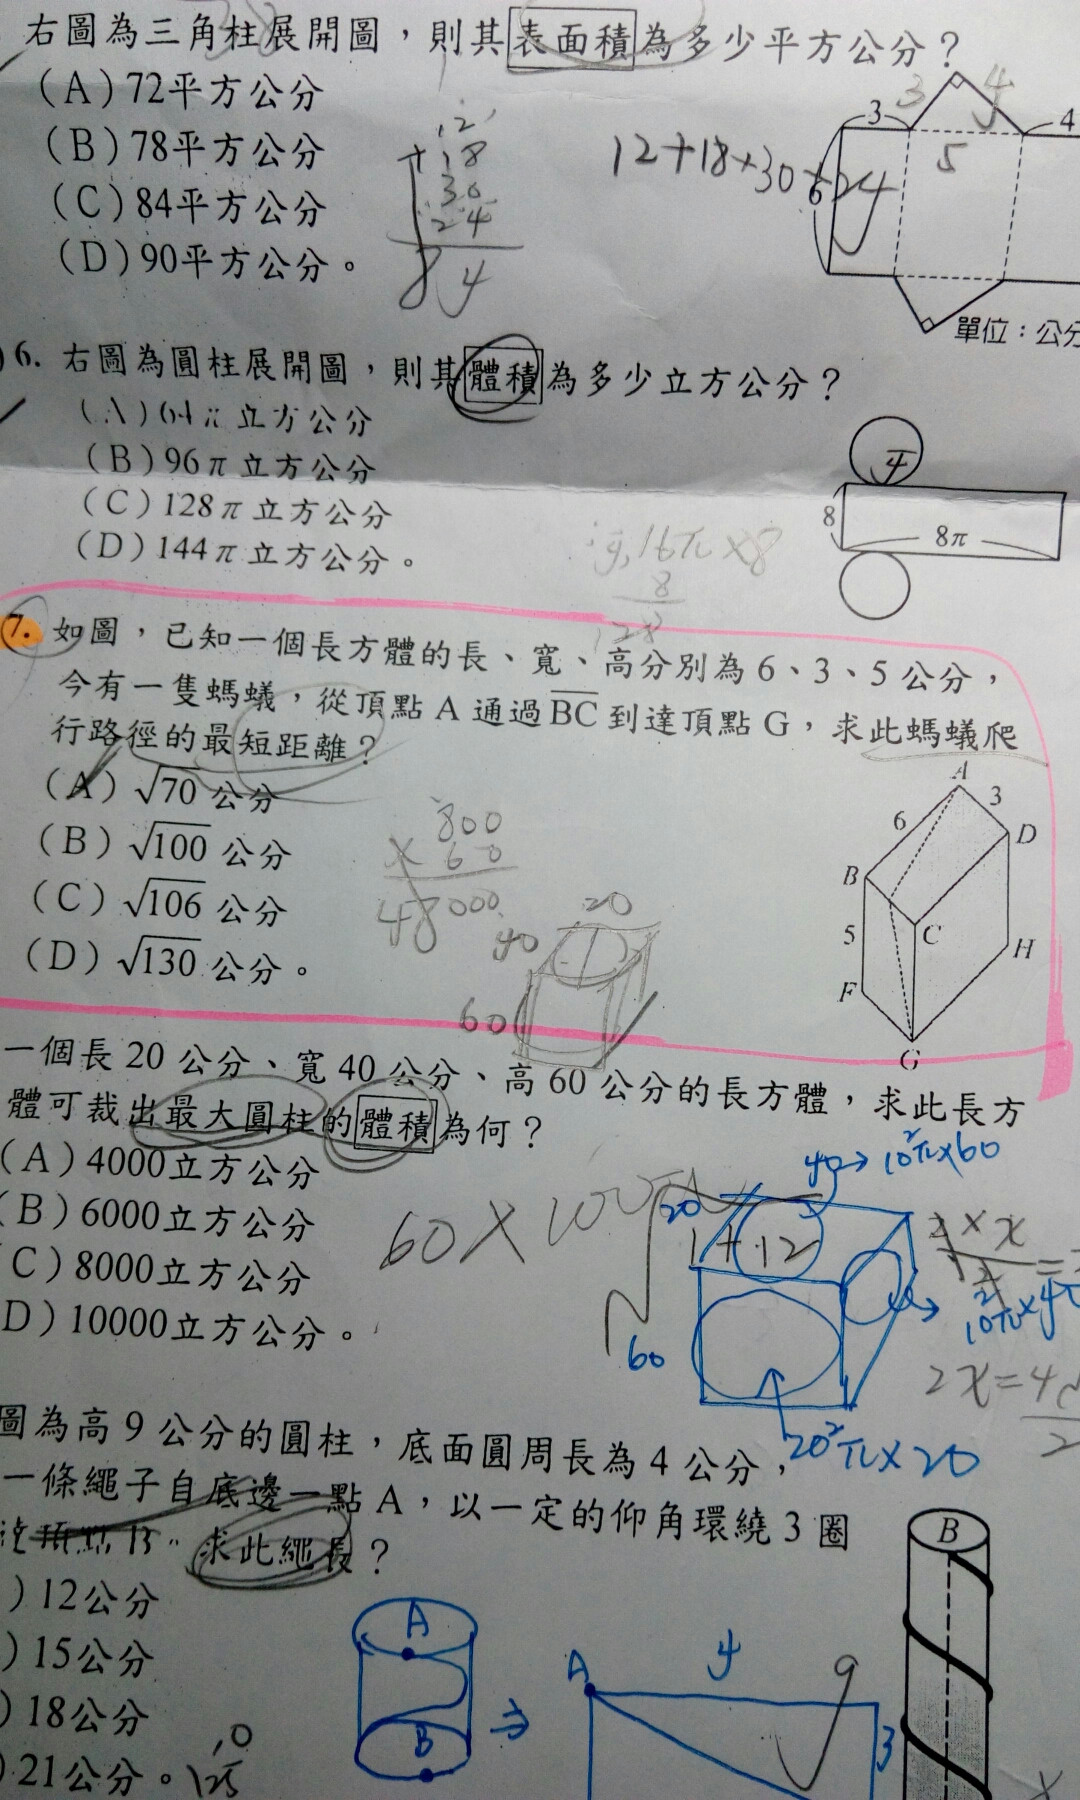 右圖為三角柱展開圖，則其表面積為多少平方公分？
(A)72平方公分
(B)78平方公分
(C)84平方公分
(D)90平方公分。
12
+18
30
24
84
12+18+30+24
3
3
4
4
5
6
單位：公分
6. 右圖為圓柱展開圖，則其體積為多少立方公分？
(A)64π立方公分
(B)96π立方公分
(C)128π立方公分
(D)144π立方公分。
16π×8
8
128
4
8
8π
7. 如圖，已知一個長方體的長、寬、高分別為6、3、5公分，
今有一隻螞蟻，從頂點A通過BC到達頂點G，求此螞蟻爬
行路徑的最短距離？
(A)√70公分
(B)√100公分
(C)√106公分
(D)√130公分。
800
×60
48000
20
40
60
A
3
6
D
B
5
C
H
F
G
一個長20公分、寬40公分、高60公分的長方體，求此長方
體可裁出最大圓柱的體積為何？
(A)4000立方公分
(B)6000立方公分
(C)8000立方公分
(D)10000立方公分。
40→10²π×60
20
1+12
60
20²π×20
2x=4
圖為高9公分的圓柱，底面圓周長為4公分，
一條繩子自底邊一點A，以一定的仰角環繞3圈
達頂點B。求此繩長？
)12公分
)15公分
)18公分
)21公分。
A
B
⇒
A
4
9
3
B